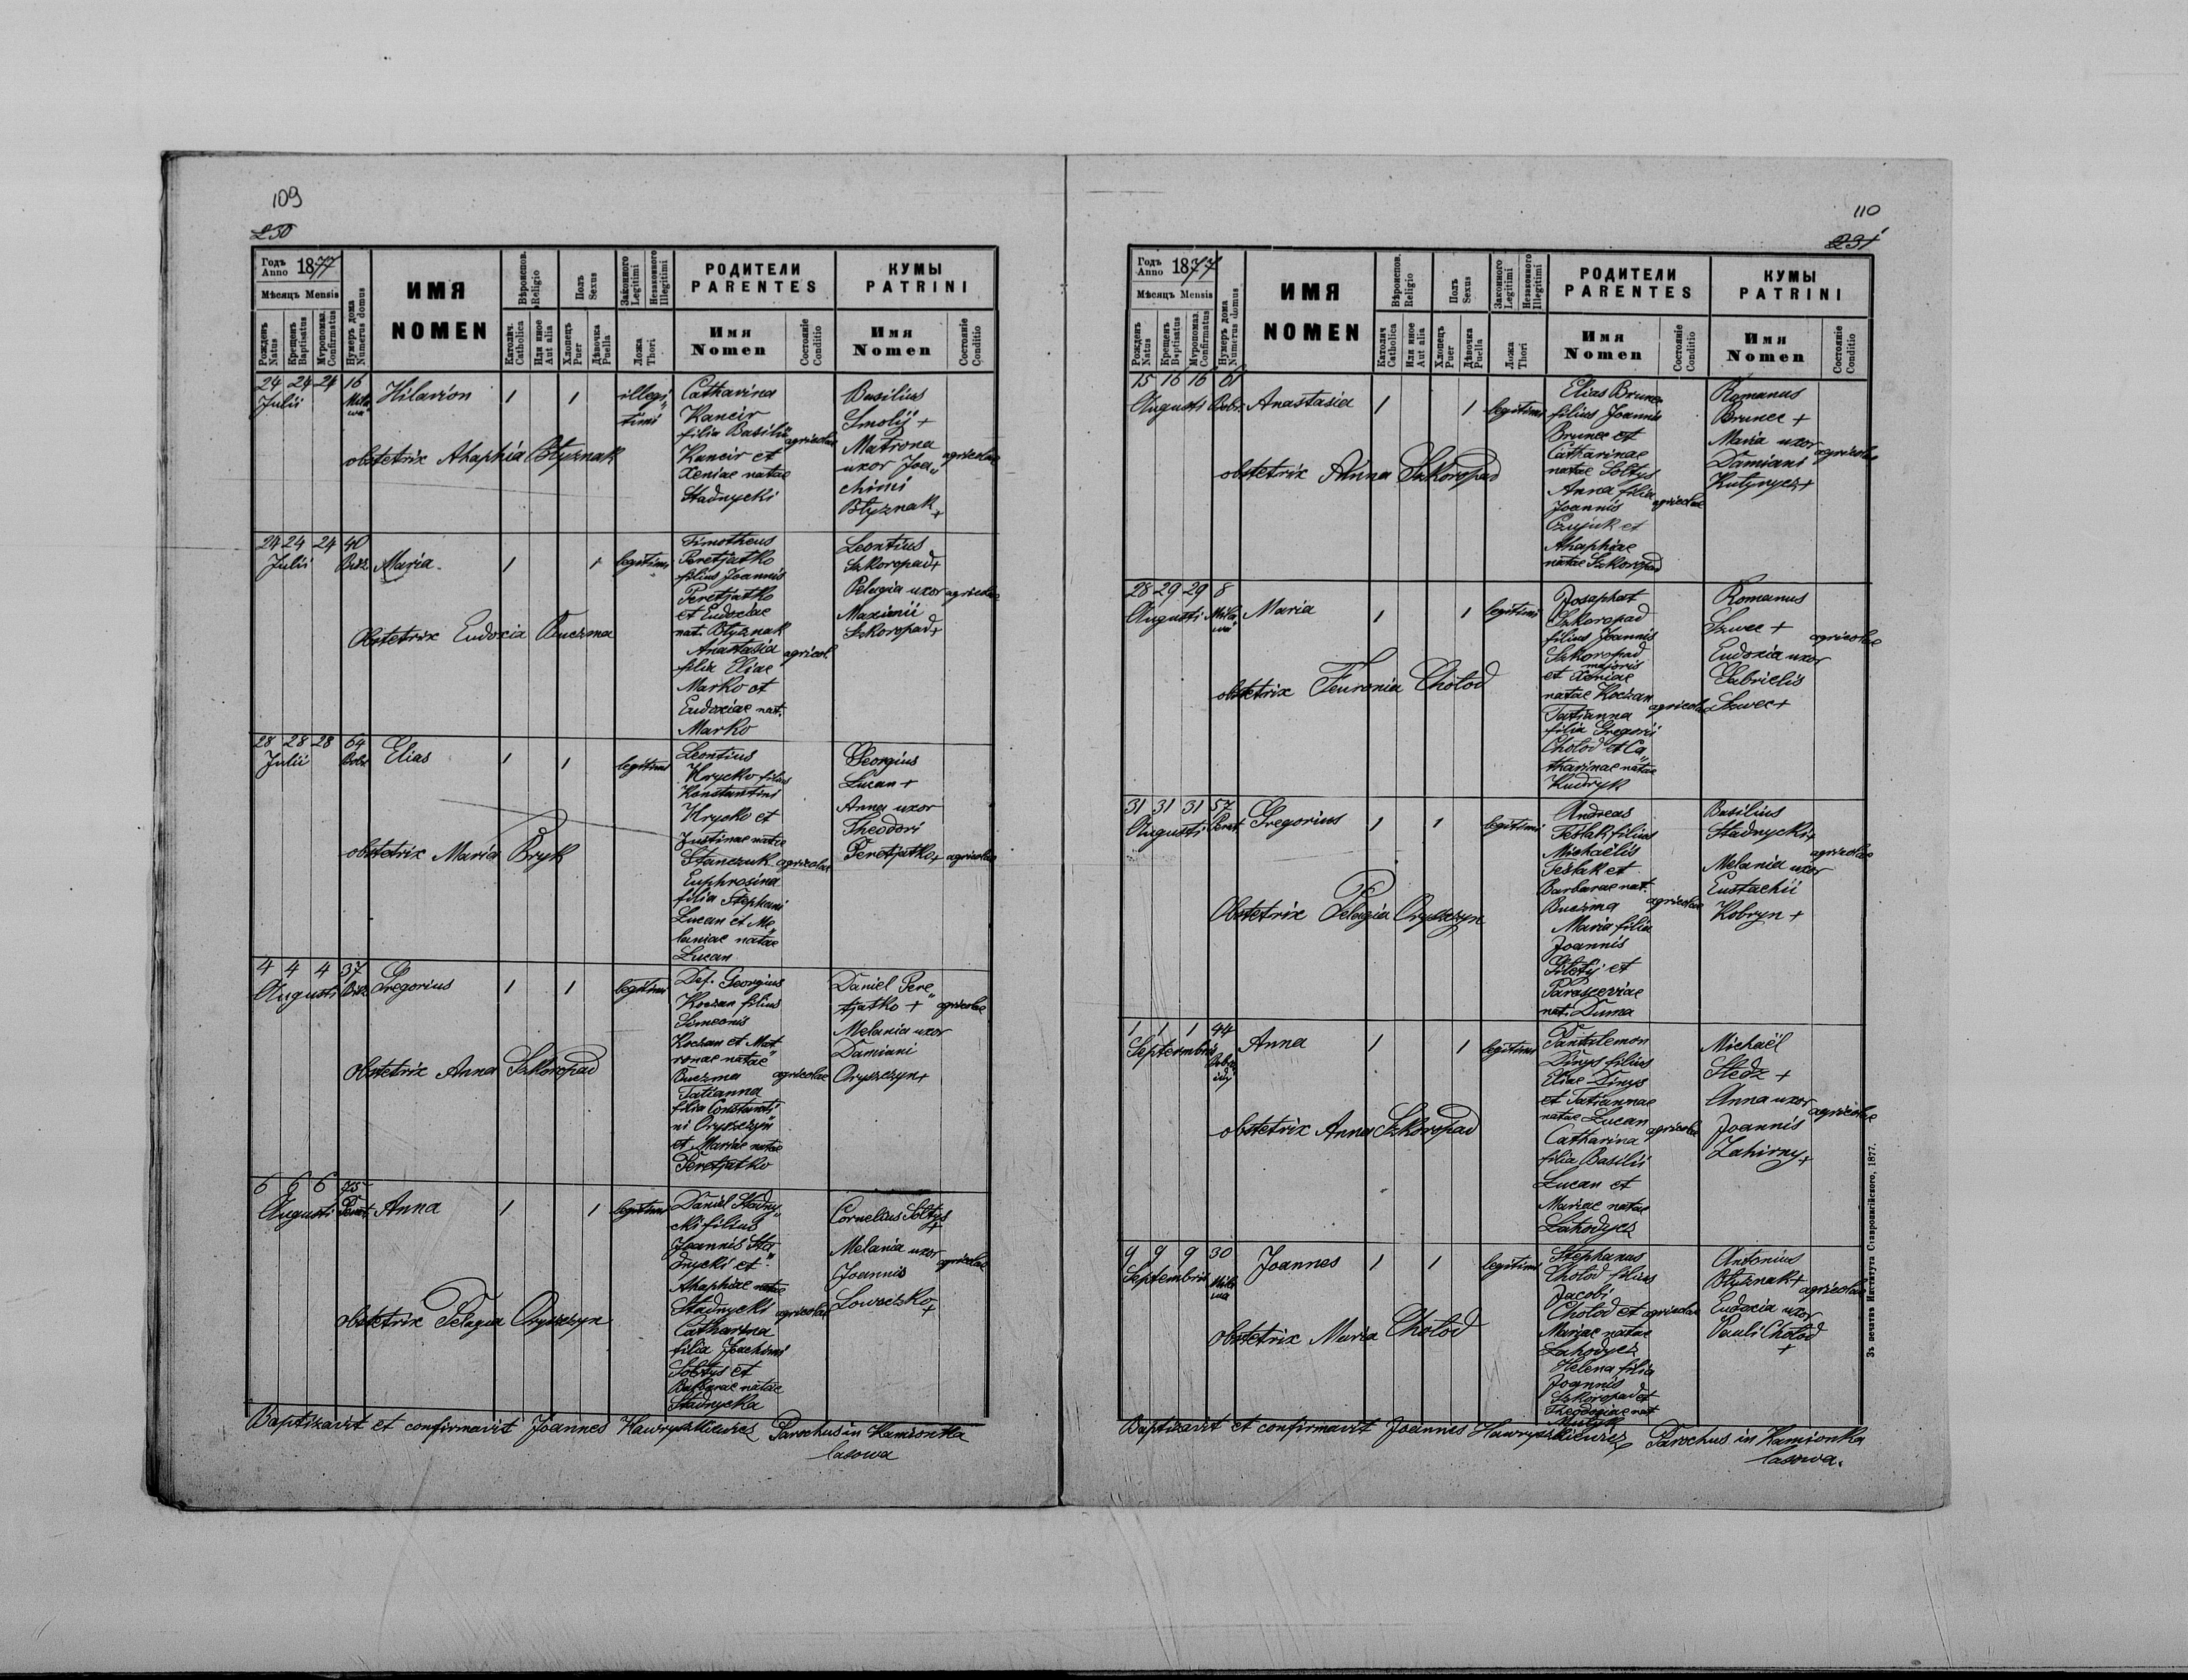 109
230
Годъ Anno 1877
Мѣсяцъ Mensis
Рожденъ Natus
Крещенъ Baptisatus
Мѵропомаз. Confirmatus
Нумеръ дома Numerus domus
ИМЯ
NOMEN
Вѣроиспов. Religio
Католич. Catholica
Или иное Aut alia
Полъ Sexus
Хлопецъ Puer
Дѣвочка Puella
Законного Legitimi
Незаконного Illegitimi
Ложа Thori
РОДИТЕЛИ
PARENTES
Имя
Nomen
Состояніе Conditio
КУМЫ
PATRINI
Имя
Nomen
Состояніе Conditio
24 24 24 16
Julii
Hilarion 1 1
illegi„
timi
Catharina
Kancir
filia Basilii
Kancir et
Xeniae natae
Stadnycki
agricolae
Basilius
Smolij +
Matrona
uxor Joa„
chimi
Błyznak +
agricolae
obstetrix Ahaphia Błyznak
24 24 24 40
Julii
Maria 1 1 legitimi
Timotheus
Peretjatko
filius Joannis
Peretjatko
et Eudoxiae
nat. Błyznak
Anastasia
filia Eliae
Marko et
Eudoxiae nat.
Marko
agricol.
Leontius
Szkoropad +
Pelagia uxor
Maximii
Szkoropad +
agricolae
Obstetrix Eudoxia Buczma
28 28 28 64
Julii
Elias 1 1 legitimi
Leontius
Hrycko filius
Konstantini
Hrycko et
Justinae natae
Stanczuk
Euphrosina
filia Stephani
Lucan et Me„
laniae natae
Lucan
agricolae
Georgius
Lucan +
Anna uxor
Theodori
Peretjatko +
agricolae
obstetrix Maria Bryk
4 4 4 37
Augusti
Gregorius 1 1 legitimi
Def. Georgius
Koczan filius
Simeonis
Koczan et Mat„
ronae natae
Buczma
Tatianna
filia Constanti„
ni Oryszczyn
et Mariae natae
Peretjatko
agricolae
Daniel Pere„
tjatko +
Melania uxor
Damiani
Oryszczyn +
agricolae
Obstetrix Anna Szkoropad
6 6 6 75
Augusti Peret.
Anna 1 1 legitimi
Daniel Stadny„
cki filius
Joannis Sta„
dnycki et
Ahaphiae natae
Stadnycki
Catharina
filia Joachimi
Sołtys et
Barbarae natae
Stadnycka
agricolae
Cornelius Sołtys +
Melania uxor
Joannis
Loweczko +
agricolae
obstetrix Pelagia Oryszczyn
Baptizavit et confirmavit Joannes Hawryszkiewicz Parochus in Kamionka
lasowa
110
231
Годъ Anno 1877
Мѣсяцъ Mensis
Рожденъ Natus
Крещенъ Baptisatus
Мѵропомаз. Confirmatus
Нумеръ дома Numerus domus
ИМЯ
NOMEN
Вѣроиспов. Religio
Католич Catholica
Или иное Aut alia
Полъ Sexus
Хлопецъ Puer
Дѣвочка Puella
Законного Legitimi
Незаконного Illegitimi
Ложа Thori
РОДИТЕЛИ
PARENTES
Имя
Nomen
Состояніе Conditio
КУМЫ
PATRINI
Имя
Nomen
Состояніе Conditio
15 16 16 61
Augusti
Anastasia 1 1 legitimi
Elias Brunec
filius Joannis
Brunec et
Catharinae
natae Sołtys
Anna filia
Joannis
Czujuk et
Ahaphiae
natae Szkoropad
agricolae
Romanus
Brunec +
Maria uxor
Damiani
Kutynycz +
agricolae
obstetrix Anna Szkoropad
28 29 29 8
Augusti
Maria 1 1 legitimi
Josaphat
Szkoropad
filius Joannis
Szkoropad
majoris
et Xeniae
natae Koczan
Tatianna
filia Gregorii
Chołod et Ca„
tharinae natae
Kudryk
agricolae
Romanus
Szwec +
Eudoxia uxor
Gabrielis
Szwec +
agricolae
obstetrix Feuronia Chołod
31 31 31 57
Augusti Peret
Gregorius 1 1 legitimi
Andreas
Teslak filius
Michaëlis
Teslak et
Barbarae nat.
Buczma
Maria filia
Joannis
Filetij et
Parasceviae
nat. Duma
agricolae
Basilius
Stadnycki +
Melania uxor
Eustachii
Kobryn +
agricolae
Obstetrix Pelagia Oryszczyn
1 1 1 44
Septembris
Anna 1 1 legitimi
Pantalemon
Dinys filius
Eliae Dinys
et Tatiannae
natae Lucan
Catharina
filia Basilii
Lucan et
Mariae natae
Lahodycz
agricolae
Michaël
Stedz +
Anna uxor
Joannis
Zahirny +
agricolae
obstetrix Anna Szkoropad
9 9 9 30
Septembris
Joannes 1 1 legitimi
Stephanus
Chołod filius
Jacobi
Chołod et
Mariae natae
Lahodycz
Helena filia
Joannis
Szkoropad et
Theodosiae nat
agricolae
Antonius
Błyznak +
Eudoxia uxor
Pauli Chołod
+
agricolae
obstetrix Maria Chołod
Baptizavit et confirmavit Joannes Hawryszkiewicz Parochus in Kamionka
lasowa.
Зъ печатнѣ Института Ставропигійского, 1877.